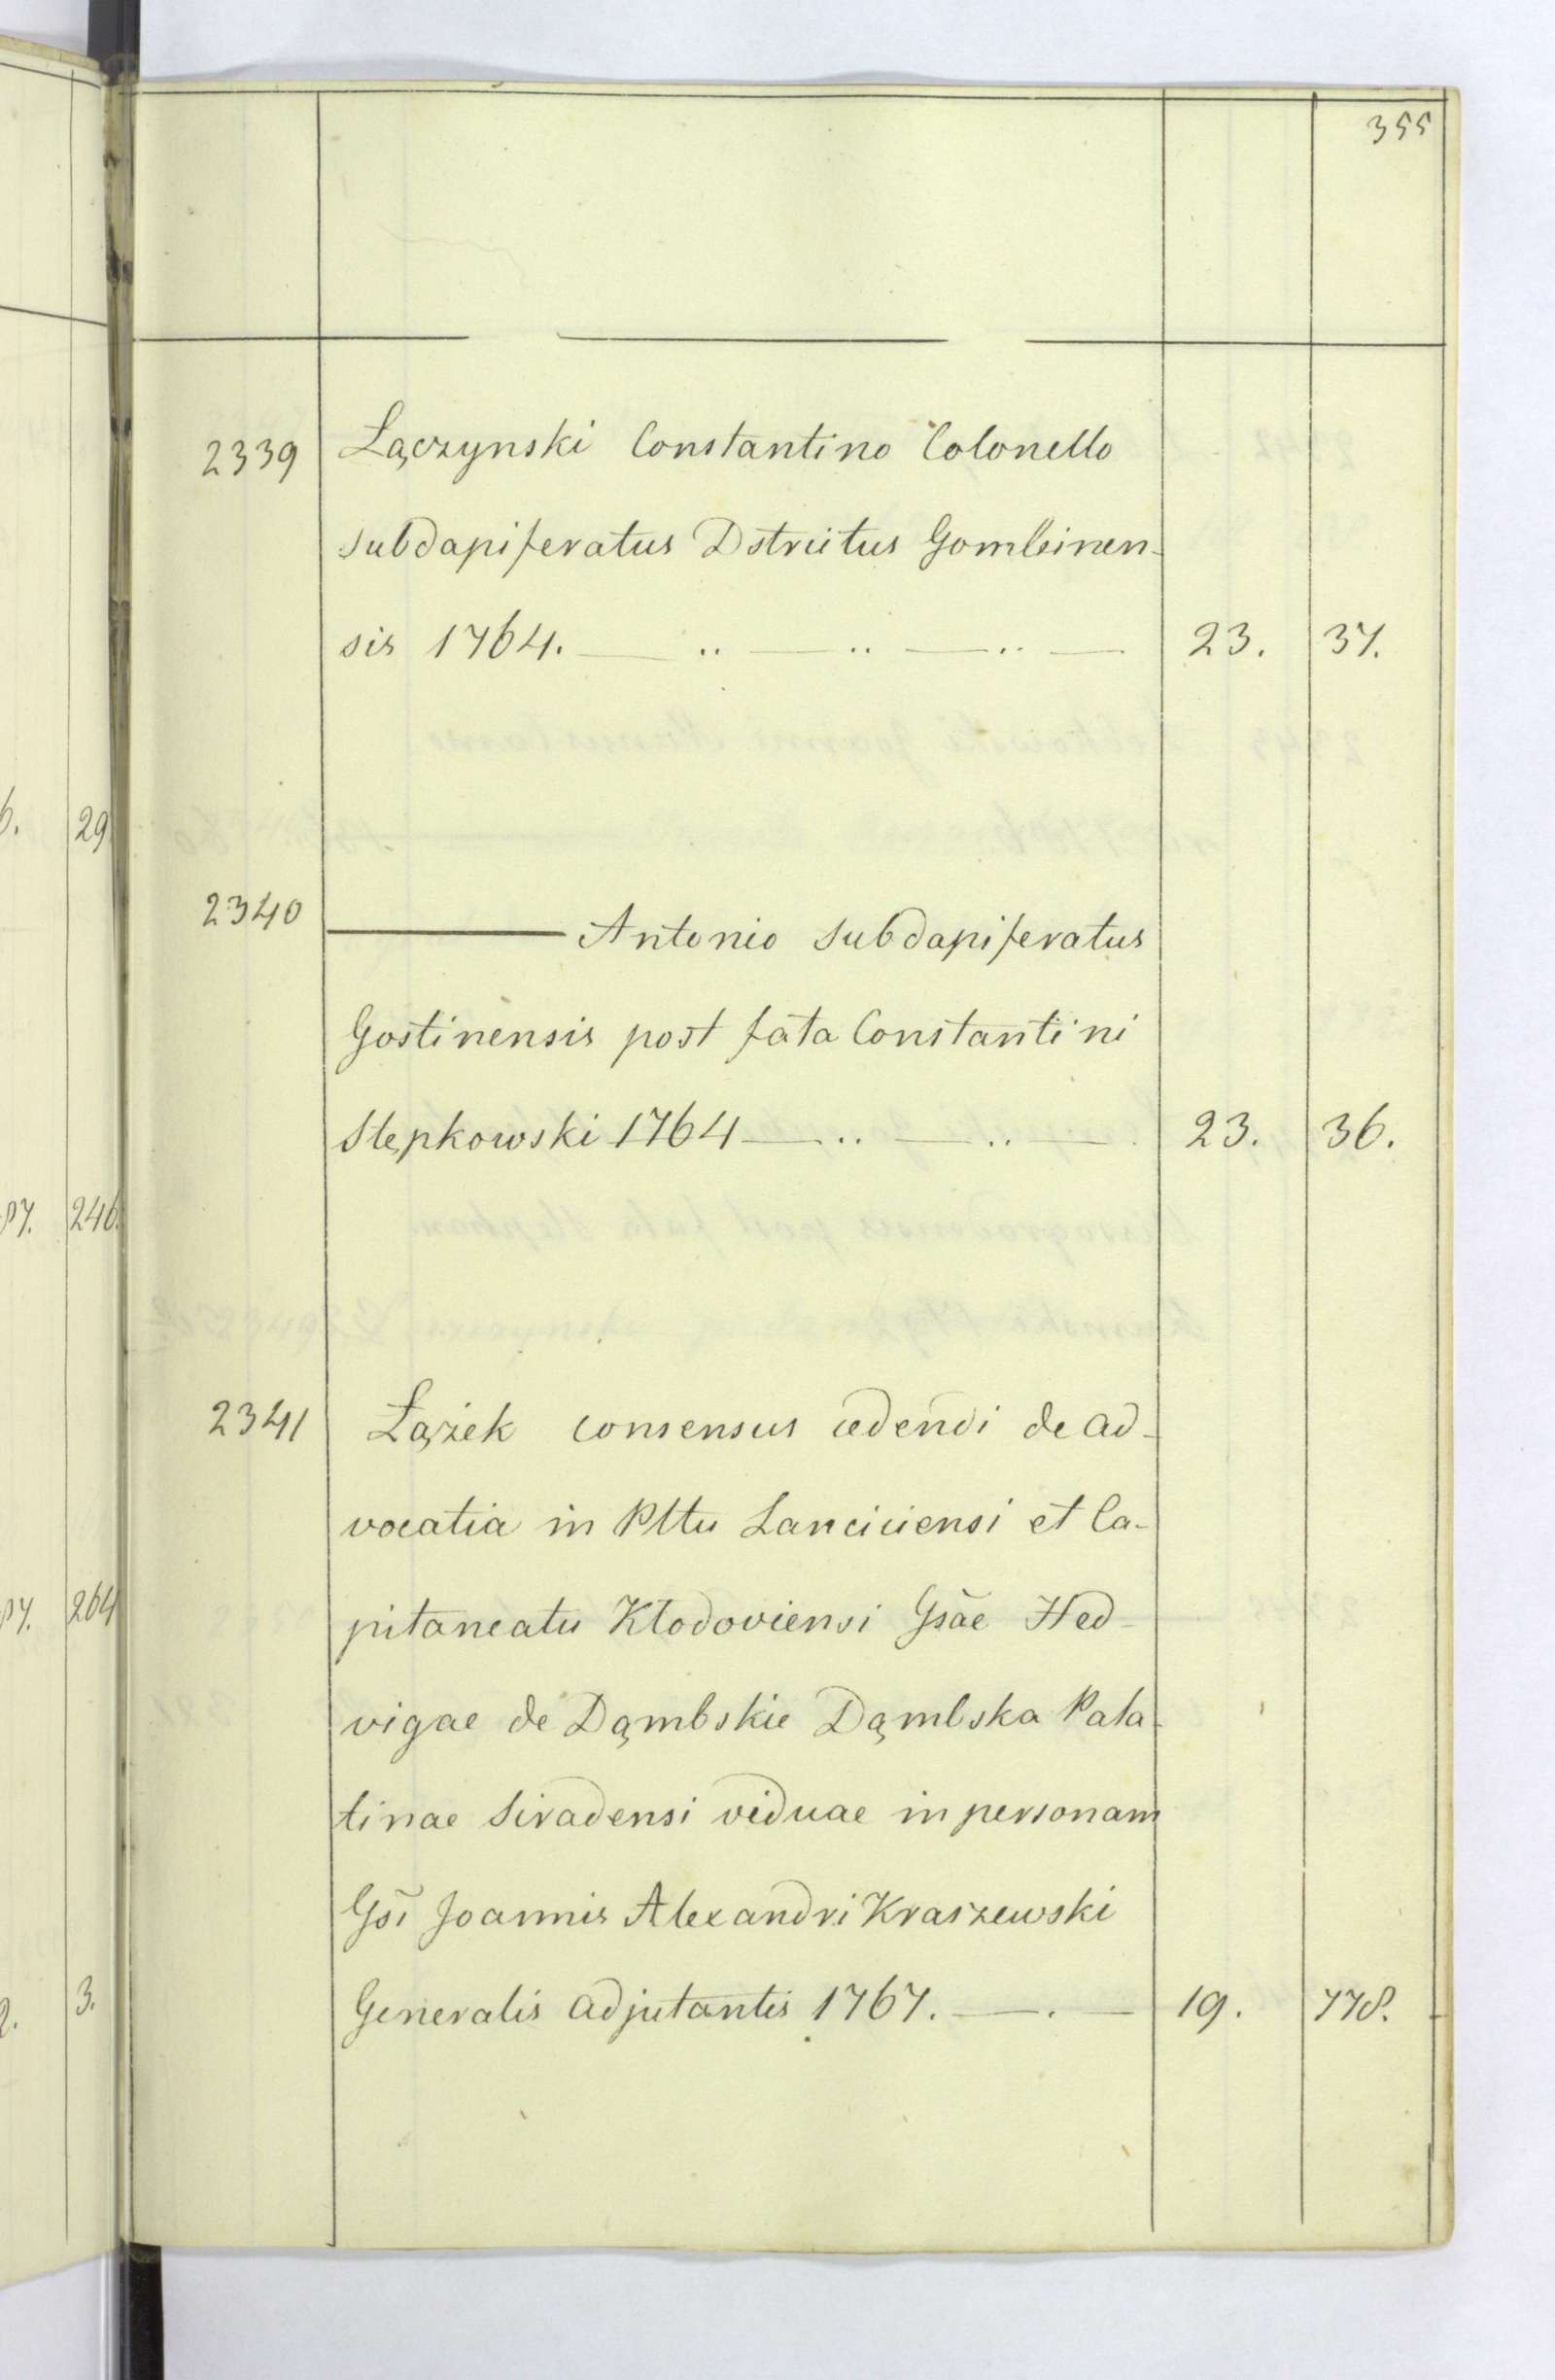 355
2339 Łączynski Constantino Colonello
subdapiferatus Dstrictus Gombinen-
sis 1764. 23. 37.
2340 Antonio subdapiferatus
Gostinensis post fata Constantini
Stępkowski 1764 23. 36.
2341 Łążek consensus cedendi de ad-
vocatia in Plttu Lanciciensi et Ca-
pitaneatu Kłodoviensi Gsãe Hed-
vigae de Dąmbskie Dąmbska Pala-
tinae Siradensi viduae in personam
Gsĩ Joannis Alexandri Kraszewski
Generalis adjutantis 1767. 19. 778.
29
246.
264
3.